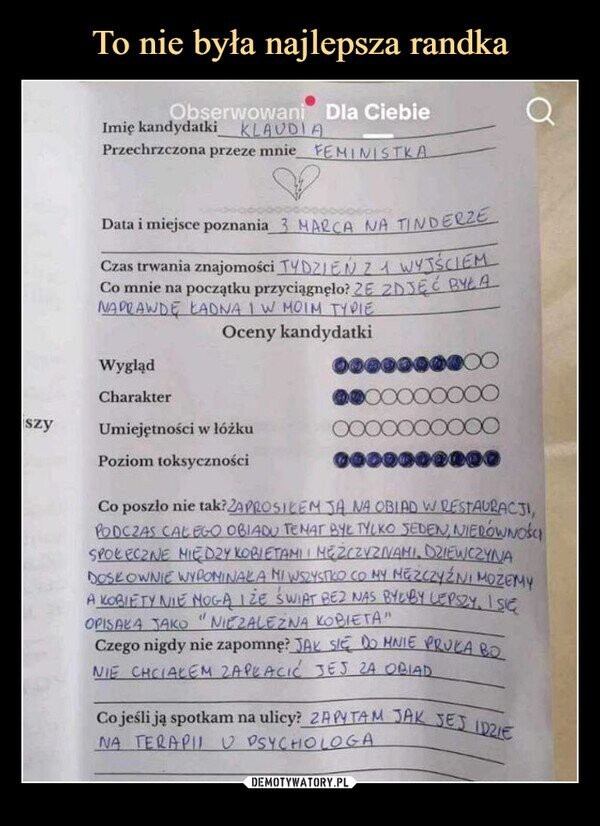 To nie była najlepsza randka
Obserwowani Dla Ciebie
Imię kandydatki KLAUDIA
Przechrzczona przeze mnie FEMINISTKA
Data i miejsce poznania 3 MARCA NA TINDERZE
Czas trwania znajomości TYDZIEŃ Z 1 WYJŚCIEM
Co mnie na początku przyciągnęło? ZE ZDJĘĆ BYŁA
NAPRAWDĘ ŁADNA I W MOIM TYPIE
Oceny kandydatki
Wygląd
Charakter
szy
Umiejętności w łóżku
Poziom toksyczności
Co poszło nie tak? ZAPROSIŁEM JĄ NA OBIAD W RESTAURACJI,
PODCZAS CAŁEGO OBIADU TEMAT BYŁ TYLKO JEDEN, NIERÓWNOŚCI
SPOŁECZNE MIĘDZY KOBIETAMI I MĘŻCZYZNAMI. DZIEWCZYNA
DOSŁOWNIE WYPOMINAŁA MI WSZYSTKO CO MY MĘŻCZYŹNI MOŻEMY
A KOBIETY NIE MOGĄ I ŻE ŚWIAT BEZ NAS BYŁBY LEPSZY. I SIĘ
OPISAŁA JAKO "NIEZALEŻNA KOBIETA"
Czego nigdy nie zapomnę? JAK SIĘ DO MNIE PRUŁA BO
NIE CHCIAŁEM ZAPŁACIĆ JEJ ZA OBIAD
Co jeśli ją spotkam na ulicy? ZAPYTAM JAK JEJ IDZIE
NA TERAPII U PSYCHOLOGA
DEMOTYWATORY.PL